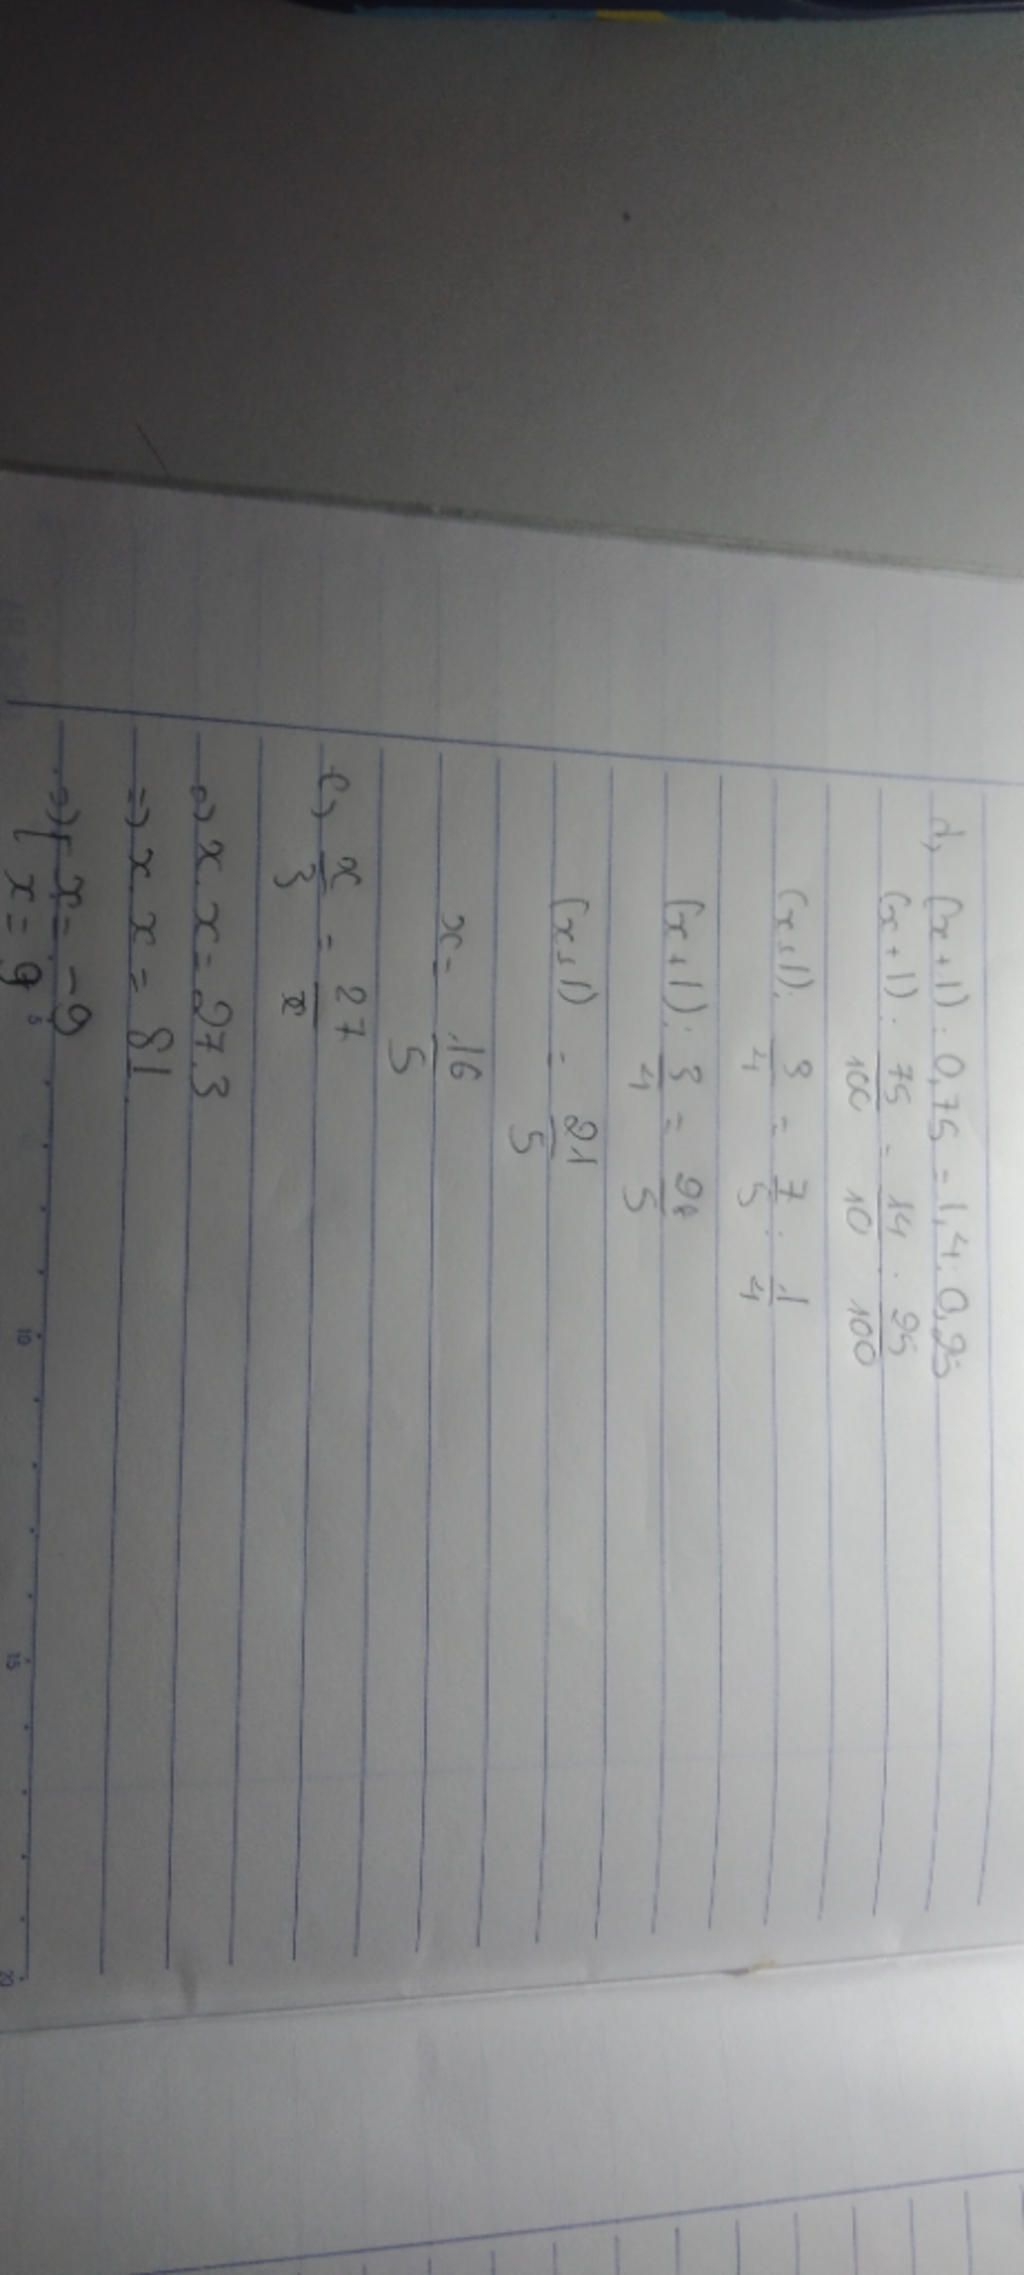 d, (x+1) : 0,75 = 1,4 : 0,25
(x+1) : 75/100 = 14/10 : 25/100
(x+1) : 3/4 = 7/5 : 1/4
(x+1) : 3/4 = 28/5
(x+1) = 21/5
x = 16/5
e, x/3 = 27/x
=> x.x = 27.3
=> x.x = 81
=> [ x = -9
x = 9
5 10 15 20